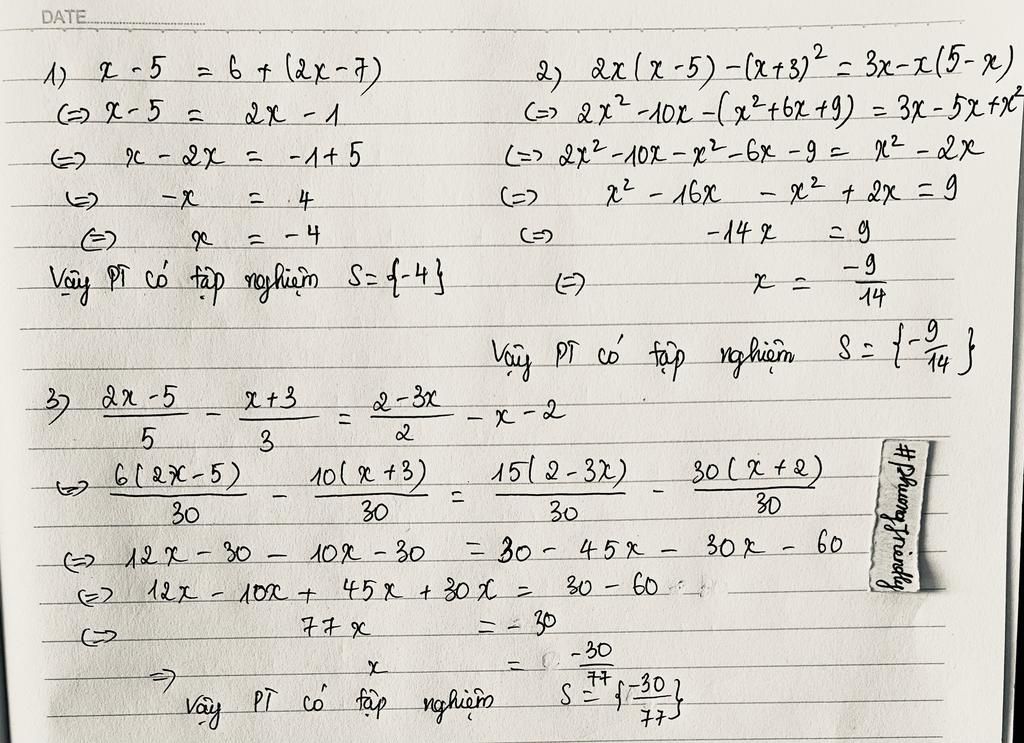 DATE
1) x - 5 = 6 + (2x - 7)
(=) x - 5 = 2x - 1
(=) x - 2x = -1 + 5
(=) -x = 4
(=) x = -4
Vậy PT có tập nghiệm S = {-4}
2) 2x(x - 5) - (x + 3)² = 3x - x(5 - x)
(=) 2x² - 10x - (x² + 6x + 9) = 3x - 5x + x²
(=) 2x² - 10x - x² - 6x - 9 = x² - 2x
(=) x² - 16x - x² + 2x = 9
(=) -14x = 9
(=) x = -9/14
Vậy PT có tập nghiệm S = {-9/14}
3) (2x - 5)/5 - (x + 3)/3 = (2 - 3x)/2 - x - 2
(=) 6(2x - 5)/30 - 10(x + 3)/30 = 15(2 - 3x)/30 - 30(x + 2)/30
(=) 12x - 30 - 10x - 30 = 30 - 45x - 30x - 60
(=) 12x - 10x + 45x + 30x = 30 - 60
(=) 77x = -30
=) x = -30/77
Vậy PT có tập nghiệm S = {-30/77}
#phuongfriendly